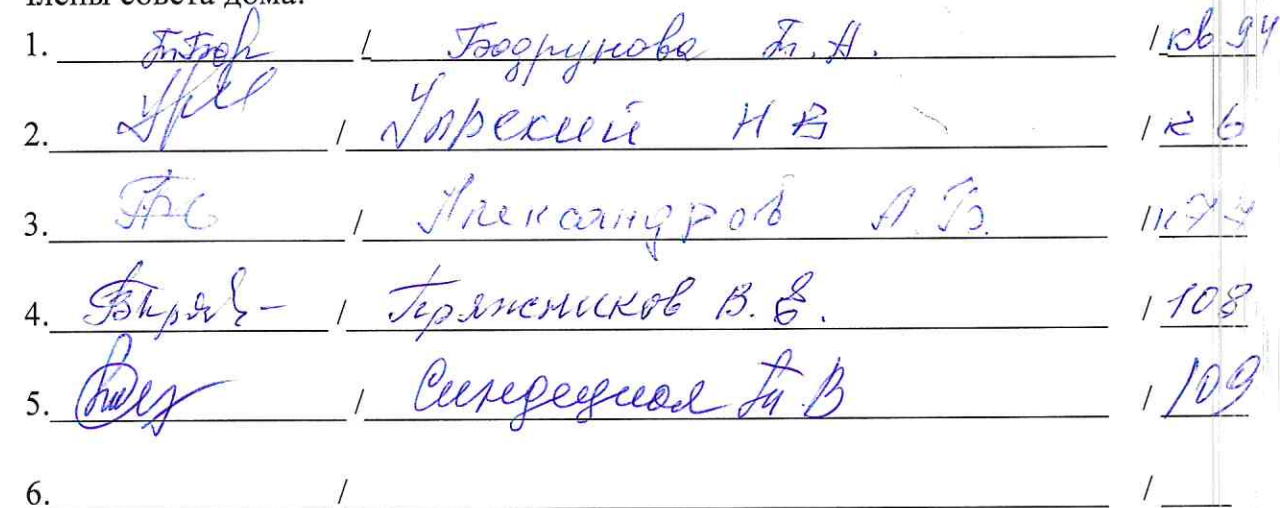 члены совета дома:
1. / Бодрунова Т.А. / кв 94
2. / Упрский Н В / к 6
3. / Александров А.В. / к 77
4. / Пряжников В.Е. / 108
5. / Т.В / 109
6. / /